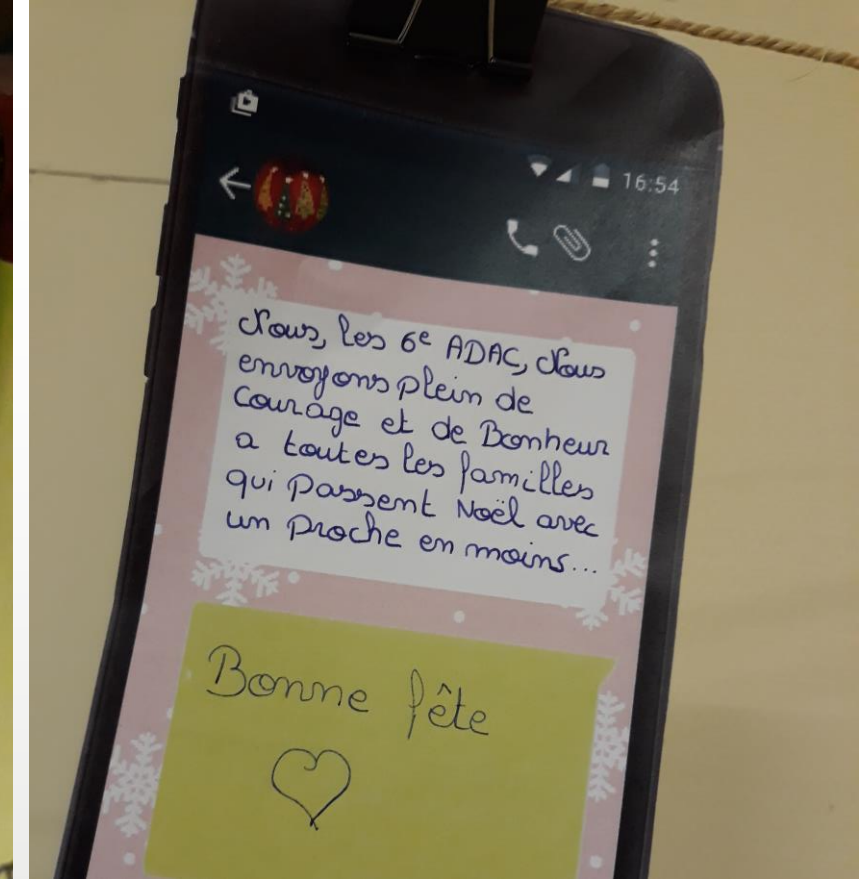 16:54
Nous, les 6e ADAC, Nous
envoyons plein de
Courage et de Bonheur
a toutes les familles
qui passent Noël avec
un proche en moins...
Bonne fête